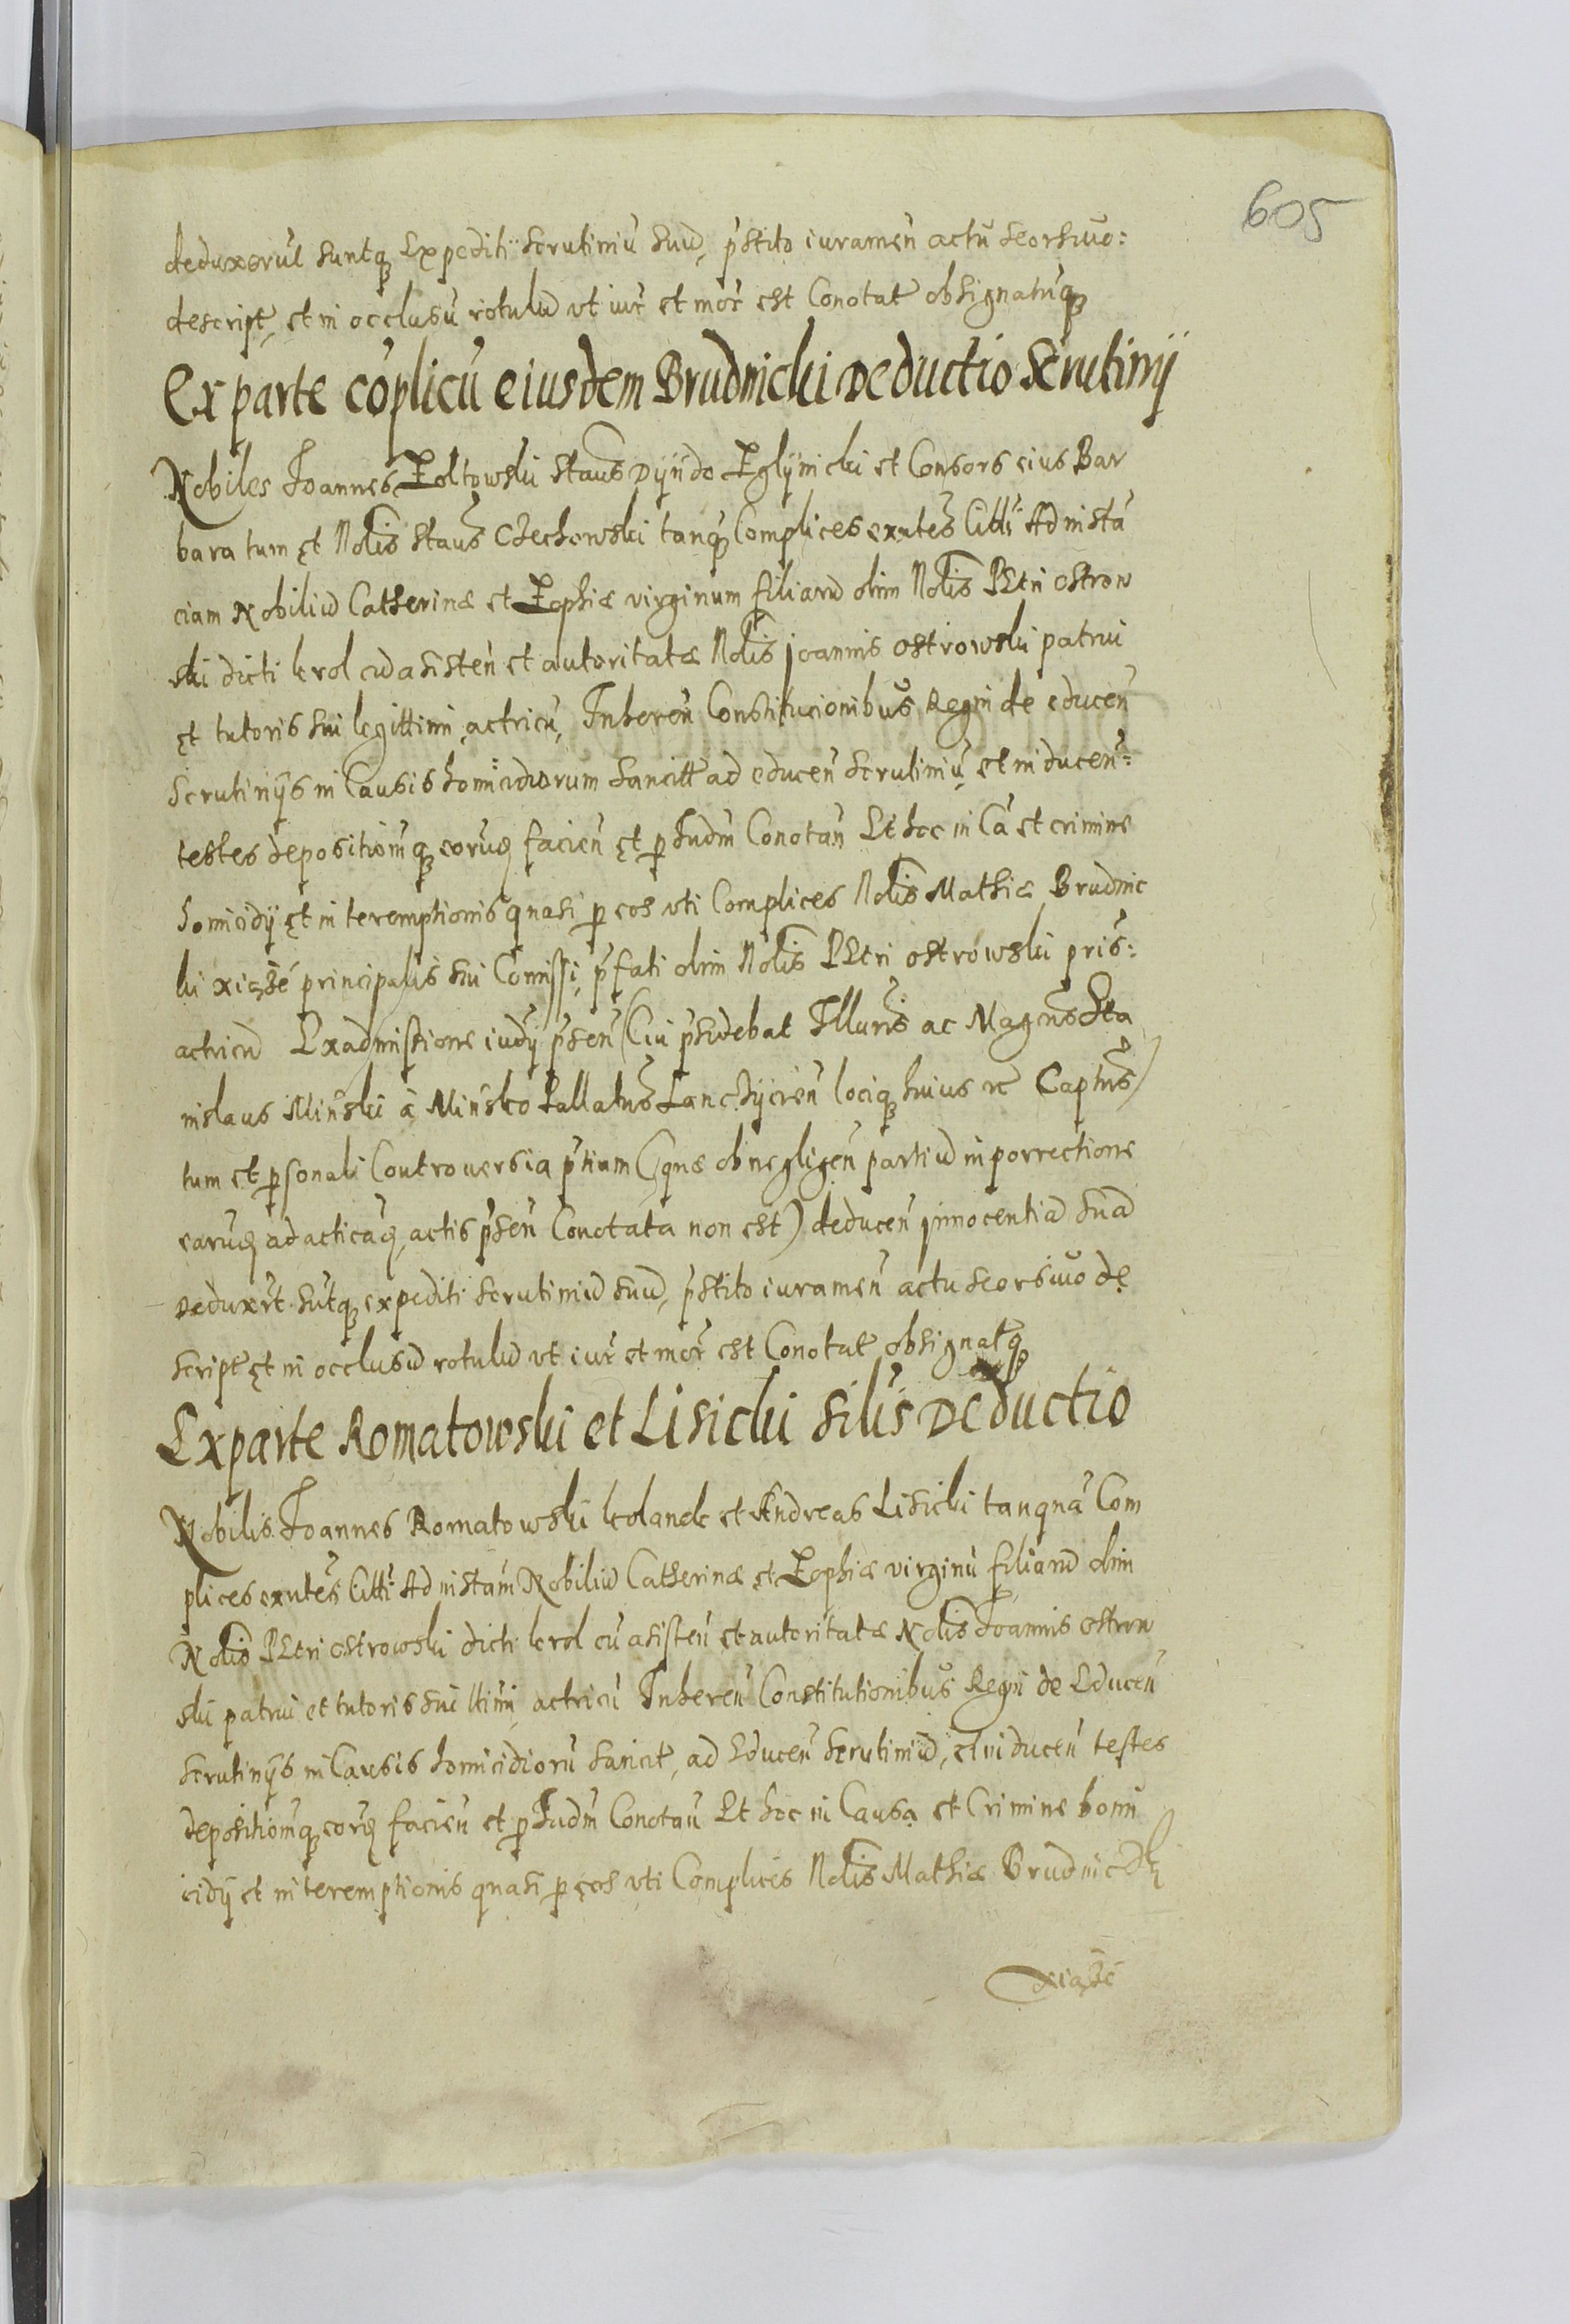 605
deduxerūt suntq₃ Expediti scrutiniū suū, p̄stito iuramen̄ actū seorsiuo:
descript, et in occlusū rotulū vt iur̄ et mor̄ est Conotat̄ obsignatūq₃
Ex parte cōplicū eiusdem Brudnicki Deductio Scrutinij
Nobiles Joannes Zoltowski Staus̄ Dÿndo Zglÿnicki et Consors eius Bar
bara tum et Nolis̄ Staus̄ Czechowski tanq̄ Complices exn̄tes Citti Ad instā
ciam Nobiliū Catherinæ et Zophiæ virginum filiarū olim Nolis̄ Petri Ostrow
ski dicti krol cū asisten̄ et autoritatæ Nolis̄ Joannis Ostrowski patrui
et tutoris sui legittimi, actricū, Inheren̄ Constitucionibus Regni de educen̄
Scrutinijs in Causis homicidiorum Sancitt ad educen̄ scrutiniū et inducen̄:
testes depositiōmq₃ eorūq₃ facien̄ et p Iudm̄ Conotan̄ Et hoc in Cā et crimine
homicidij et interemptionis quasi p eos vti Complices Nolis̄ Mathiæ Brudnic
ki xiąże principalis sui Comissi, p̄fati olim Nolis̄ Petri Ostrowski pris̄:
actricū Ex admissione iudij p̄sen̄ (Cui p̄sidebat Illuris̄ ac Magnus̄ Sta
nislaus Minski à Minsko Pallatus̄ Lancÿcien̄ lociq₃ huius etc Captnus̄)
tum et psonali Controuersia p̄tium (quæ ob negligen̄ partiū in porrectione
earūq₃ ad acticaq₃, actis p̄sen̄ Conotata non est) deducen̄ innocentiā suā
Deduxer̄t sūtq₃ expediti scrutiniū suū, p̄stito iuramen̄ actu seorsiuo de
script et in occlusū rotulū vt iur̄ et mor̄ est Conotat obsignatq₃
Ex parte Romatowski et Lisicki silis̄ Deductio
Nobilis Joannes Romatowski kolande et Andreas Lisicki tanquā Com
plices exn̄tes Citti Ad instam Nobiliū Catherinæ et Zophiæ virginū filiarū olim
Nolis̄ Petri Ostrowski dicti krol cū asisten̄ et autoritatæ Nolis̄ Joannis Ostrow
ski patrui et tutoris sui ltimi, actricū Inheren̄ Constitutionibus Regni de Educen̄
scrutinijs in Causis homicidiorū sancit, ad Educen̄ scrutiniū, et inducen̄ testes
depositiōmq₃ eorūq₃ facien̄ et p Iudm̄ Conotan̄ Et hoc in Causa et Crimine hom
icidij et interemptionis quasi p eos vti Complices Nolis̄ Mathiæ Brudnicki
xiąże